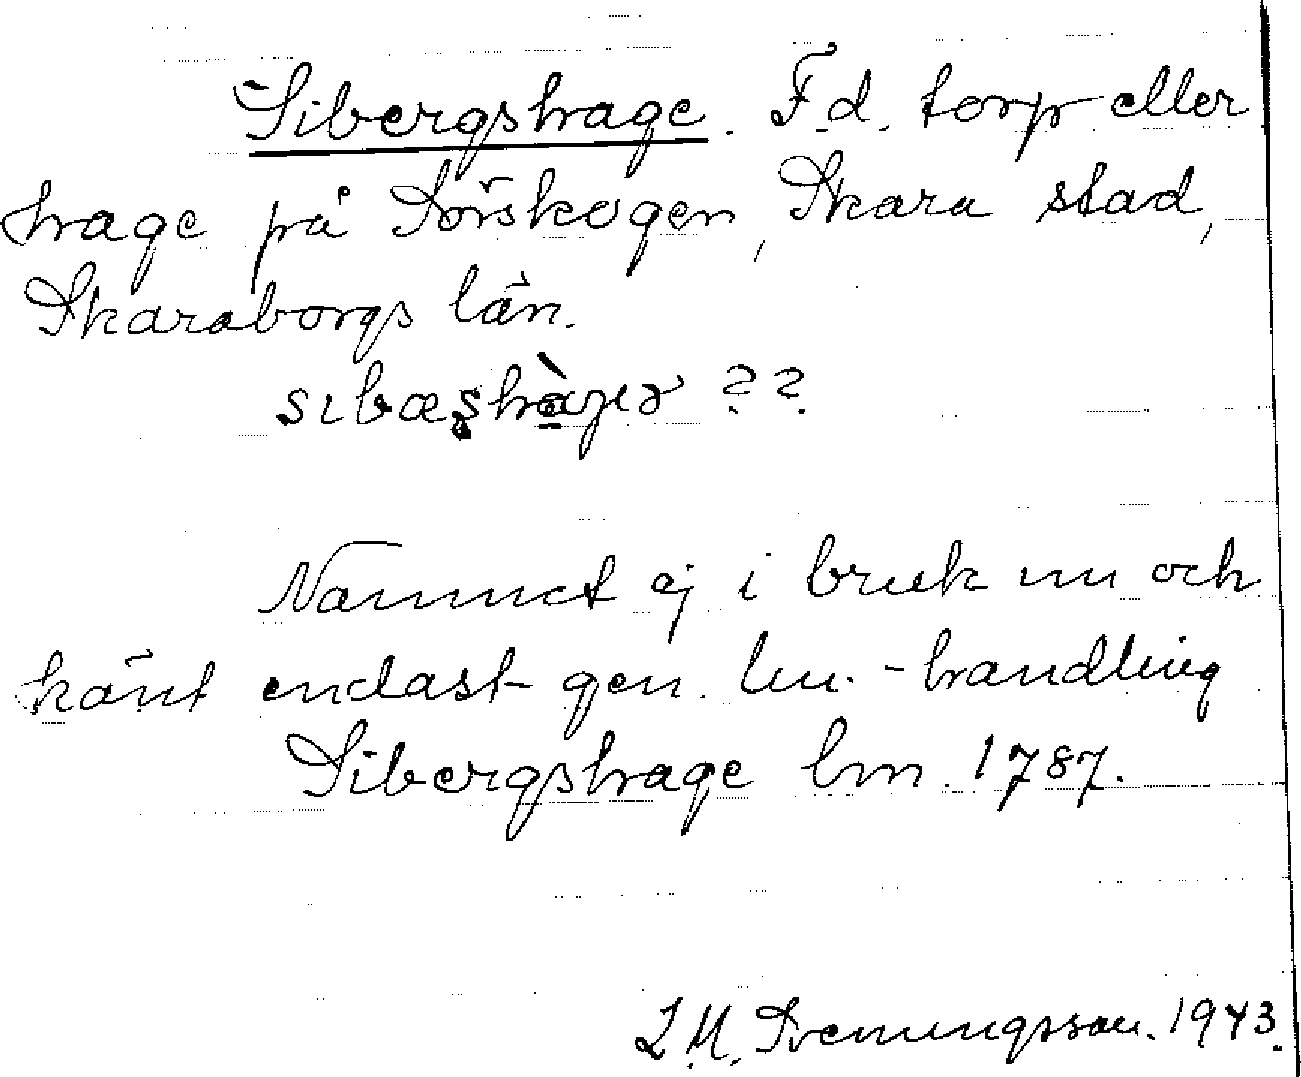 Sibergshage. F.d. torp eller
hage på Sörskogen, Skara stad,
Skaraborgs län.
??
Namnet ej i bruk nu och
känt endast gen. lm.-handling
Sibergshage lm. 1787.
I. M. Svenungsson. 1943.